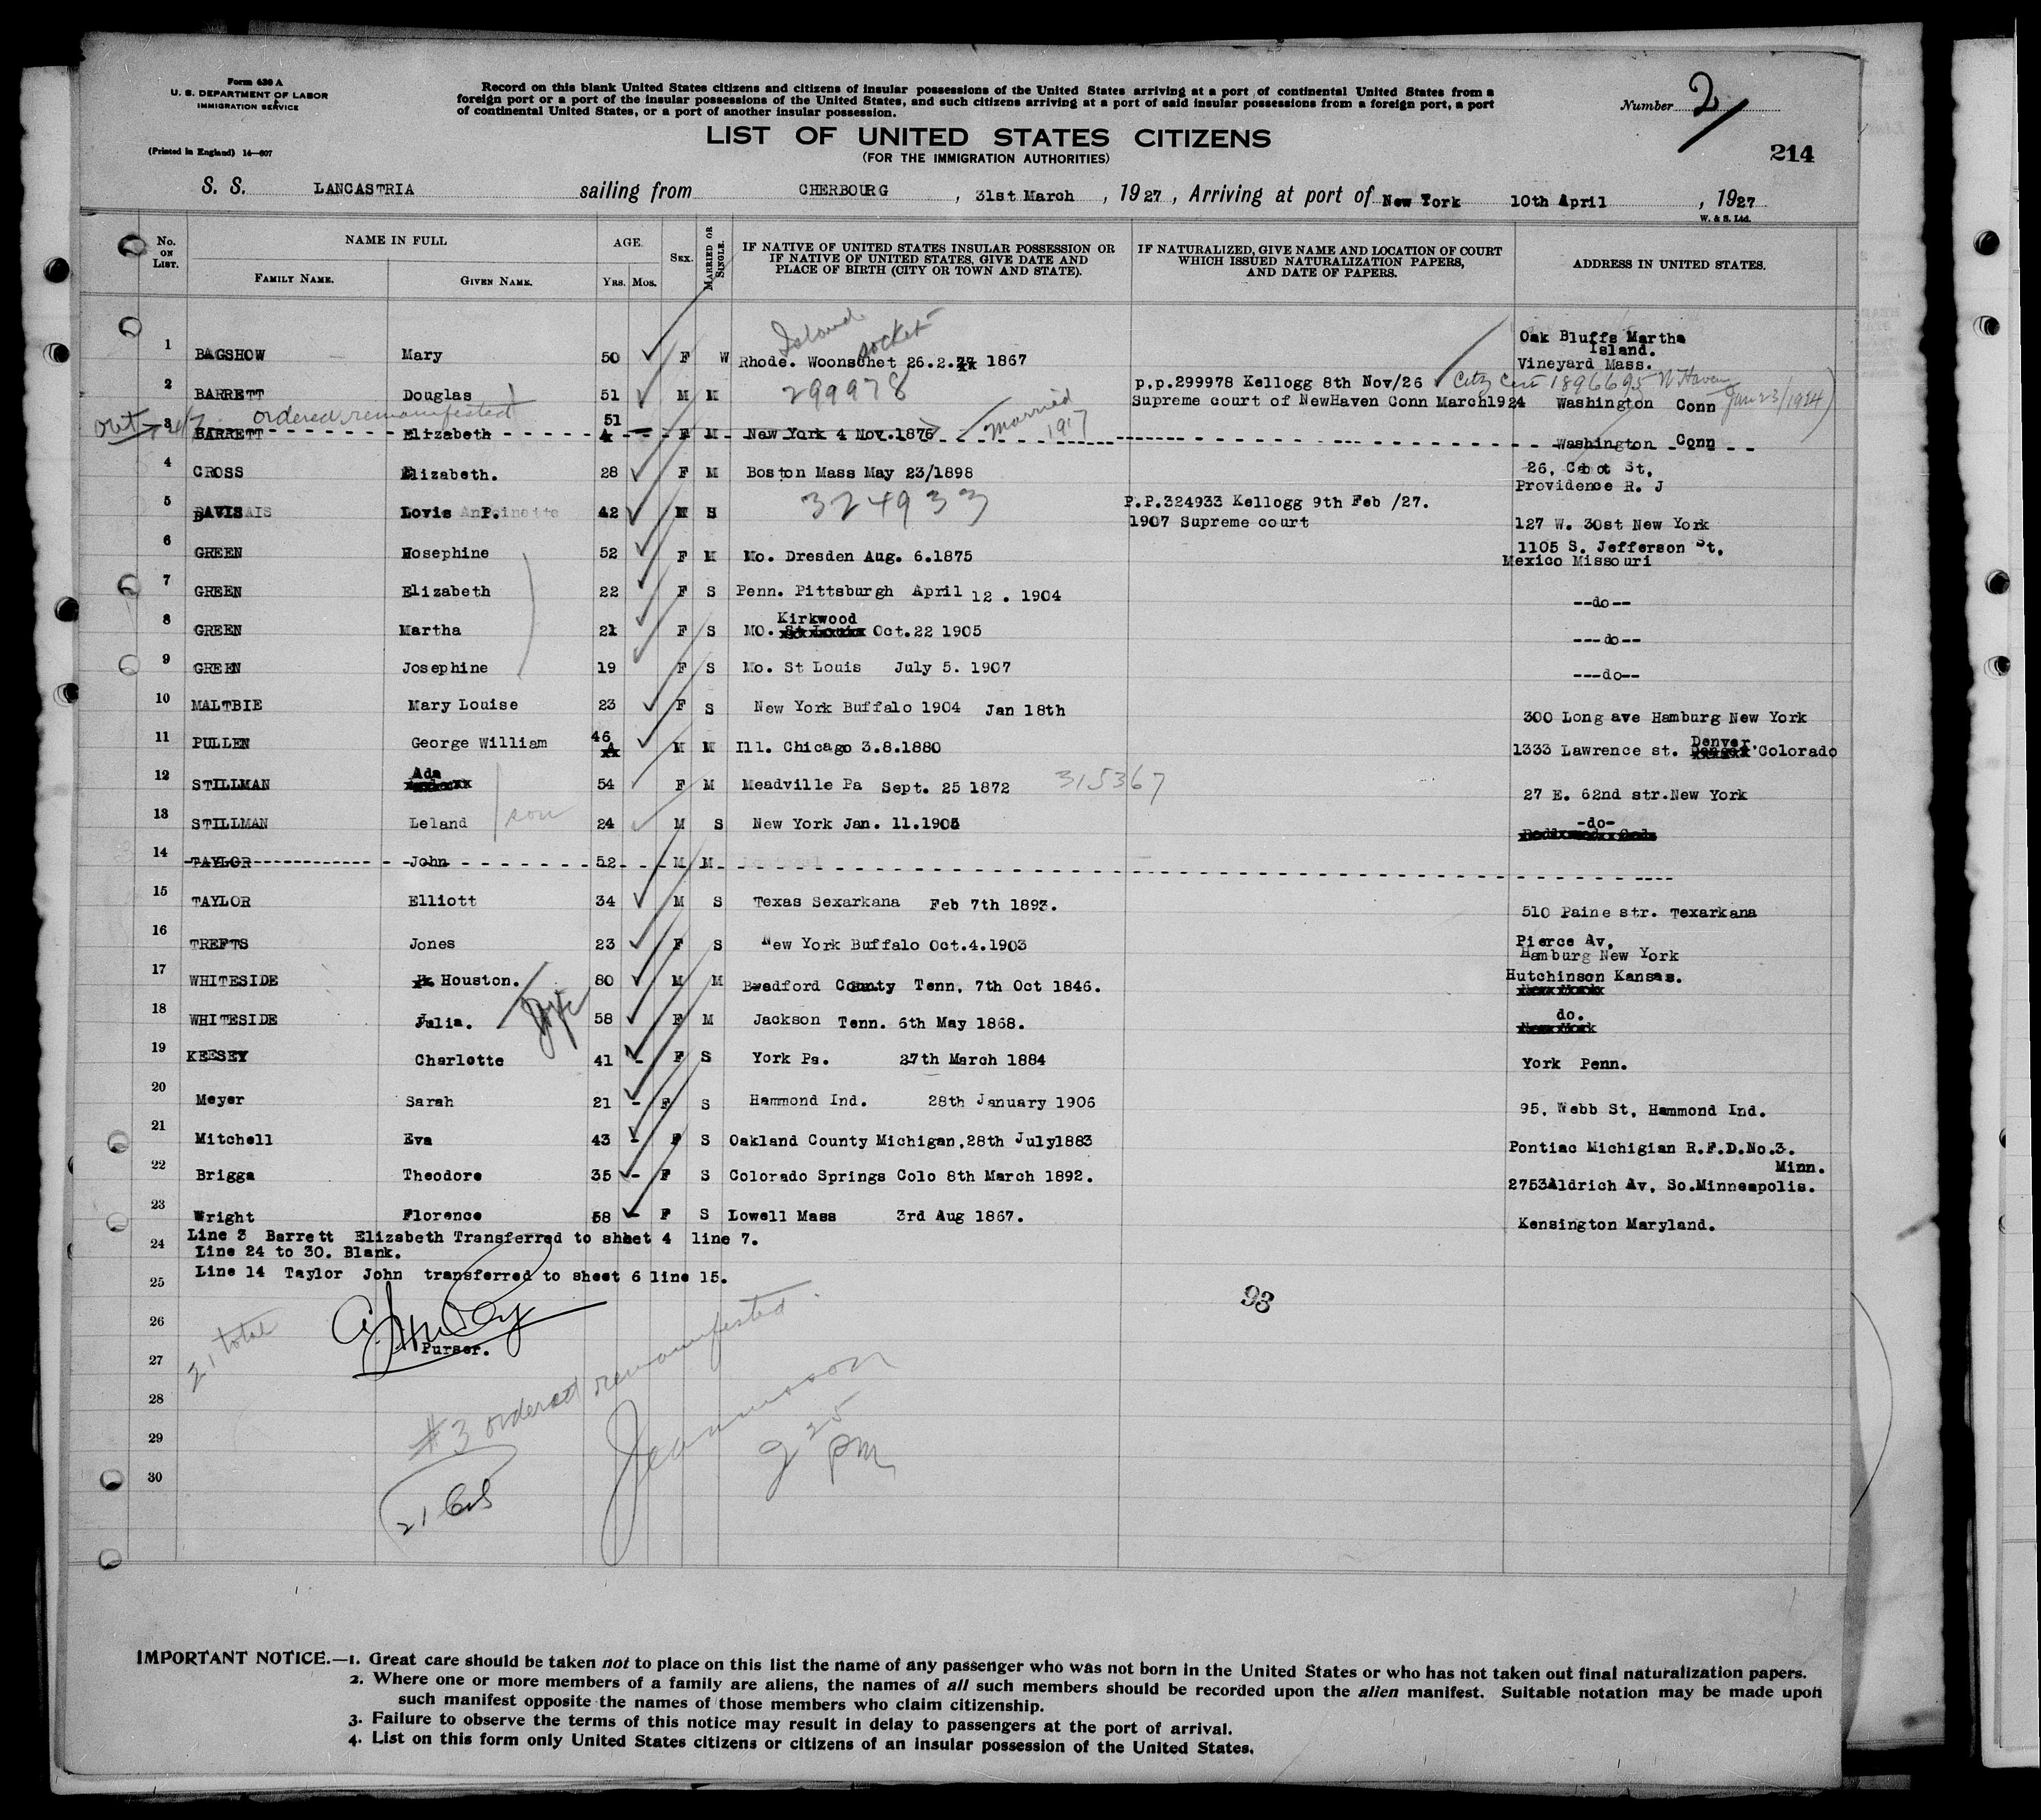 Form 630 A
U. S. DEPARTMENT OF LABOR
IMMIGRATION SERVICE
(Printed in England) 14—607
Record on this blank United States citizens and citizens of insular possessions of the United States arriving at a port of continental United States from a
foreign port or a port of the insular possessions of the United States, and such citizens arriving at a port of said insular possessions from a foreign port, a port
of continental United States, or a port of another insular possession.
Number 2
LIST OF UNITED STATES CITIZENS
(FOR THE IMMIGRATION AUTHORITIES)
214
S. S. LANCASTRIA sailing from CHERBOURG, 31st March, 1927, Arriving at port of New York 10th April, 1927
W. & S. Ltd.
No. ON LIST. NAME IN FULL AGE. SEX. MARRIED OR SINGLE. IF NATIVE OF UNITED STATES INSULAR POSSESSION OR IF NATIVE OF UNITED STATES, GIVE DATE AND PLACE OF BIRTH (CITY OR TOWN AND STATE). IF NATURALIZED, GIVE NAME AND LOCATION OF COURT WHICH ISSUED NATURALIZATION PAPERS, AND DATE OF PAPERS. ADDRESS IN UNITED STATES.
FAMILY NAME. GIVEN NAME. YRS. MOS.
Island socket
1 BAGSHOW Mary 50 F W Rhode. Woonschet 26.2. 1867 Oak Bluffs Martha Island. Vineyard Mass.
2 BARRETT Douglas 51 M M 299978 p.p.299978 Kellogg 8th Nov/26 City Cert 1896695 N Haven Jan 23/1924
Supreme court of NewHaven Conn March1924 Washington Conn
out ordered remanifested
3 BARRETT Elizabeth 51 F M New York 4 Nov.1876 married 1917 Washington Conn
4 CROSS Elizabeth. 28 F M Boston Mass May 23/1898 26, Cabot St, Providence R. J
5 DAVIS Lovis P. 42 M 324933 P.P.324933 Kellogg 9th Feb /27. 1907 Supreme court 127 W. 30st New York
6 GREEN Hosephine 52 F M Mo. Dresden Aug. 6.1875 1105 S. Jefferson St, Mexico Missouri
7 GREEN Elizabeth 22 F S Penn. Pittsburgh April 12 . 1904 --do--
8 GREEN Martha 21 F S MO. Kirkwood St Louis Oct.22 1905 ---do--
9 GREEN Josephine 19 F S Mo. St Louis July 5. 1907 ---do--
10 MALTBIE Mary Louise 23 F S New York Buffalo 1904 Jan 18th 300 Long ave Hamburg New York
11 PULLEN George William 46 M M Ill. Chicago 3.8.1880 1333 Lawrence st. Denver. Colorado
12 STILLMAN Ada 54 F M Meadville Pa Sept. 25 1872 315367 27 E. 62nd str.New York
13 STILLMAN Leland son 24 M S New York Jan. 11.1905 -do-
14 TAYLOR John 52 M M
15 TAYLOR Elliott 34 M S Texas Sexarkana Feb 7th 1893. 510 Paine str. Texarkana
16 TREFTS Jones 23 F S New York Buffalo Oct.4.1903 Pierce Av, Hamburg New York
17 WHITESIDE Houston. 80 M M Bedford County Tenn, 7th Oct 1846. Hutchinson Kansas. New York
18 WHITESIDE Julia. 58 F M Jackson Tenn. 6th May 1868. do. New York
19 KEESEY Charlotte 41 - F S York Pa. 27th March 1884 York Penn.
20 Meyer Sarah 21 - F S Hammond Ind. 28th January 1906 95, Webb St, Hammond Ind.
21 Mitchell Eva 43 - F S Oakland County Michigan,28th July1883 Pontiac Michigian R.F.D.No.3.
22 Brigga Theodore 35 - F S Colorado Springs Colo 8th March 1892. 2753Aldrich Av, So.Minneapolis. Minn.
23 Wright Florence 58 - F S Lowell Mass 3rd Aug 1867. Kensington Maryland.
24 Line 3 Barrett Elizabeth Transferred to sheet 4 line 7.
Line 24 to 30. Blank.
25 Line 14 Taylor John transferred to sheet 6 line 15.
93
26
21 total
Purser.
27
28
#3 ordered remanifested
29
2 25 pm
30
21
IMPORTANT NOTICE.—1. Great care should be taken not to place on this list the name of any passenger who was not born in the United States or who has not taken out final naturalization papers.
2. Where one or more members of a family are aliens, the names of all such members should be recorded upon the alien manifest. Suitable notation may be made upon
such manifest opposite the names of those members who claim citizenship.
3. Failure to observe the terms of this notice may result in delay to passengers at the port of arrival.
4. List on this form only United States citizens or citizens of an insular possession of the United States.